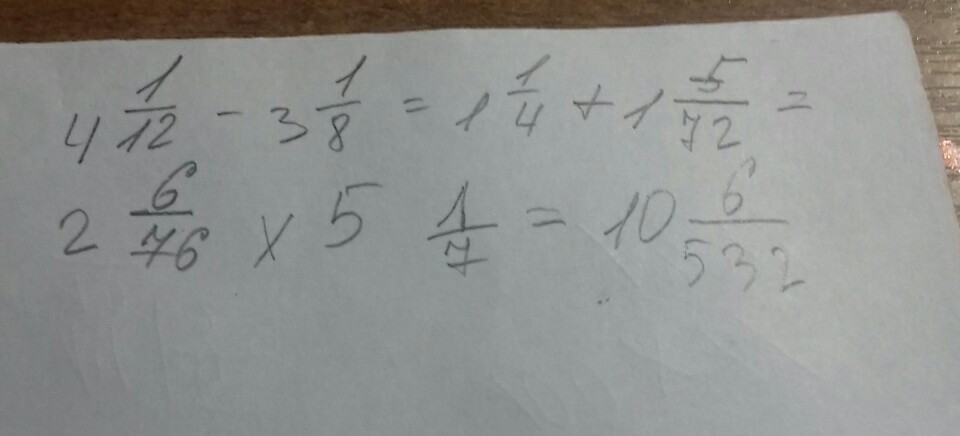 4 1/12 - 3 1/8 = 1 1/4 + 1 5/72 =
2 6/76 x 5 1/7 = 10 6/532